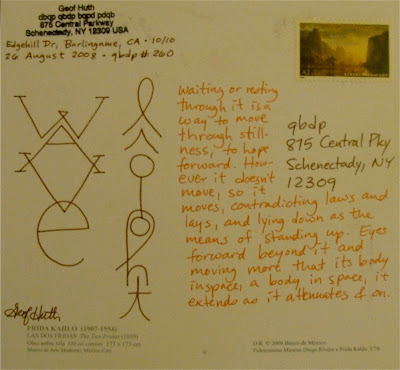 Geof Huth
dbqp qbdp bqpd pdqb
875 Central Parkway
Schenectady, NY 12309 USA
Edgehill Dr, Burlingame, CA • 10/10
26 August 2008 • qbdp # 260
Waiting or resting
through it is a
way to move
through still-
ness, to hope
forward. How-
ever it doesn't
move, so it
moves, contradicting laws and
lays, and lying down as the
means of standing up. Eyes
forward beyond it and
moving more that its body
in space, a body in space, it
extends as it attenuates & on.
qbdp
875 Central Pky
Schenectady, NY
12309
Geof Huth
FRIDA KAHLO (1907-1954)
LAS DOS FRIDAS The Two Fridas (1939)
Óleo sobre tela 173 x 173 cm
Museo de Arte Moderno, México City
D.R. © 2008 Banco de México
Fideicomiso Museos Diego Rivera y Frida Kahlo,